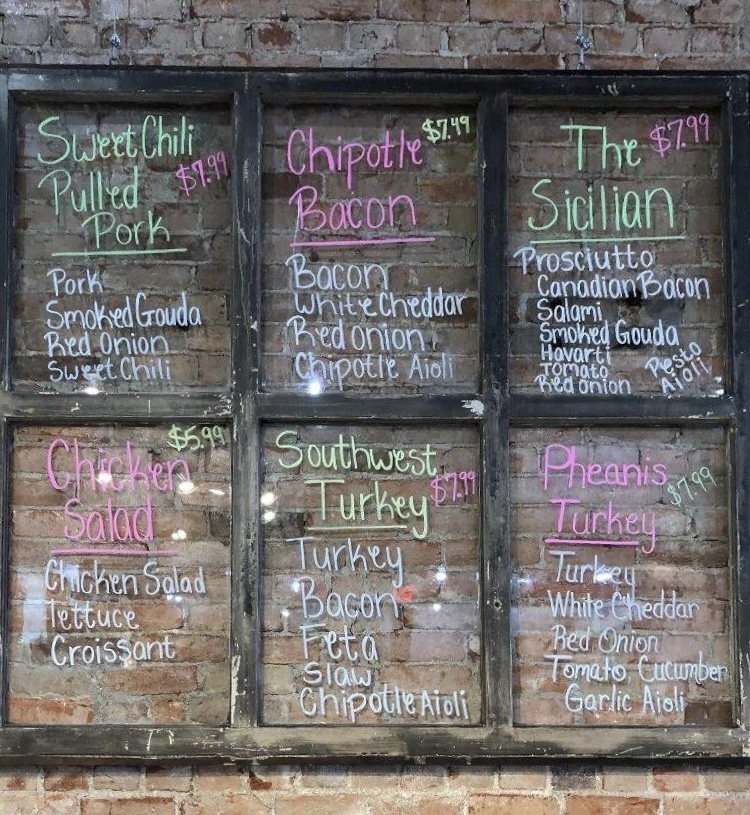 Sweet Chili
$7.99
Pulled
Pork
Pork
Smoked Gouda
Red Onion
Sweet Chili
Chipotle $7.49
Bacon
Bacon
White Cheddar
Red onion
Chipotle Aioli
The $7.99
Sicilian
Prosciutto
Canadian Bacon
Salami
Smoked Gouda
Havarti
Tomato
Red onion
Pesto
Aioli
$5.99
Chicken
Salad
Chicken Salad
lettuce
Croissant
Southwest
Turkey $7.99
Turkey
Bacon
Feta
Slaw
Chipotle Aioli
Pheanis
$7.99
Turkey
Turkey
White Cheddar
Red Onion
Tomato, Cucumber
Garlic Aioli